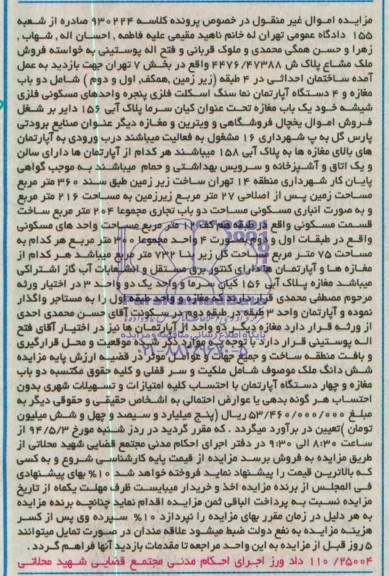 مزایده اموال غیر منقول در خصوص پرونده کلاسه ۹۳۰۲۲۴ صادره از شعبه
۱۵۵ دادگاه عمومی تهران له خانم ناهید مقیمی علیه فاطمه، احسان اله، شهاب،
زهرا و حسن همگی محمدی و ملوک قربانی و فتح اله پوستینی به خواسته فروش
ملک مشاع پلاک ش ۴۴۷۶/۴۷۳۸۸ واقع در بخش ۷ تهران جهت بازدید به عمل
آمده ساختمان احداثی در ۴ طبقه (زیر زمین، همکف، اول و دوم) شامل دو باب
مغازه و ۴ دستگاه آپارتمان نما سنگ اسکلت فلزی پنجره واحدهای مسکونی فلزی
شیشه خور یک باب مغازه تحت عنوان کیان سرما پلاک آبی ۱۵۶ دایر بر شغل
فروش اموال یخچال فروشگاهی و ویترین و مغازه دیگر عنوان صنایع برودتی
پارس گل به پ شهرداری ۱۶ مشغول به فعالیت میباشند درب ورودی به آپارتمان
های بالای مغازه ها به پلاک آبی ۱۵۸ میباشند هر کدام از آپارتمان ها دارای سالن
و یک اتاق و آشپزخانه و سرویس بهداشتی و حمام میباشند به موجب گواهی
پایان کار شهرداری منطقه ۱۴ تهران ساخت زیر زمین طبق سند ۳۶۰ متر مربع
مساحت زمین پس از اصلاحی ۲۷ متر مربع زیرزمین به مساحت ۲۱۶ متر مربع
و به صورت انباری مسکونی مساحت دو باب تجاری مجموعا ۲۰۴ متر مربع ساخت
قسمت مسکونی واقع در طبقه هم کف متر مربع مساحت واحد های مسکونی
واقع در طبقات اول و دوم به صورت ۴ واحد مجموعا متر مربع هر کدام به
مساحت ۷۵ متر مربع مساحت کل زیر بنا ۷۳۲ متر مربع میباشد هر کدام از
مغازه ها و آپارتمان ها دارای کنتور برق مستقل و انشعابات آب گاز اشتراکی
میباشد مغازه پلاک آبی ۱۵۶ کیان سرما و واحد یک دو واحد ۳ در اختیار ورثه
مرحوم مصطفی محمدی قرار دارند که مغازه و واحد طبقه اول را به مستاجر واگذار
نموده و آپارتمان واحد ۳ طبقه دوم در سکونت آقای حسن محمدی احدی
از ورثه قرار دارد مغازه دیگر و دو واحد از آپارتمان ها نیز در اختیار آقای فتح
اله پوستینی قرار دارد با توجه به موارد ذکر شده موقعیت و محل قرارگیری
و بافت منطقه ساخت و جمیع جهات و عوامل موثر در قضیه ارزش پایه مزایده
شش دانگ ملک موصوف شامل ملکیت و سر قفلی و کلیه حقوق مکتسبه دو باب
مغازه و چهار دستگاه آپارتمان با احتساب کلیه امتیازات و تسهیلات شهری بدون
احتساب هر گونه بدهی یا عوارض احتمالی به اشخاص حقیقی و حقوقی دیگر به
مبلغ ۵۳/۴۶۰/۰۰۰/۰۰۰ ریال (پنج میلیارد و سیصد و چهل و شش میلیون
تومان) تعیین در برآورد میگردد. که مقرر گردید در روز شنبه مورخ ۹۴/۵/۳ از
ساعت ۸:۳۰ الی ۹:۳۰ در دفتر اجرای احکام مدنی مجتمع قضایی شهید محلاتی از
طریق مزایده به فروش برسد مزایده از قیمت پایه کارشناسی شروع و به کسی
که بالاترین قیمت را پیشنهاد نماید فروخته خواهد شد ۱۰٪ بهای پیشنهادی
فی المجلس از برنده مزایده اخذ و خریدار میبایست ظرف مهلت یکماه از تاریخ
مزایده نسبت به پرداخت الباقی ثمن مزایده اقدام نماید چنانچه برنده مزایده
به هر دلیل در زمان مقرر بهای مزایده را نپردازد ۱۰٪ سپرده وی پس از کسر
هزینه مزایده به نفع دولت ضبط میشود علاقه مندان در صورت تمایل میتوانند
۵ روز قبل از مزایده به این واحد مراجعه تا مقدمات بازدید آنها فراهم گردد.
۱۱۰/۲۵۰۰۴ داد ورز اجرای احکام مدنی مجتمع قضایی شهید محلاتی